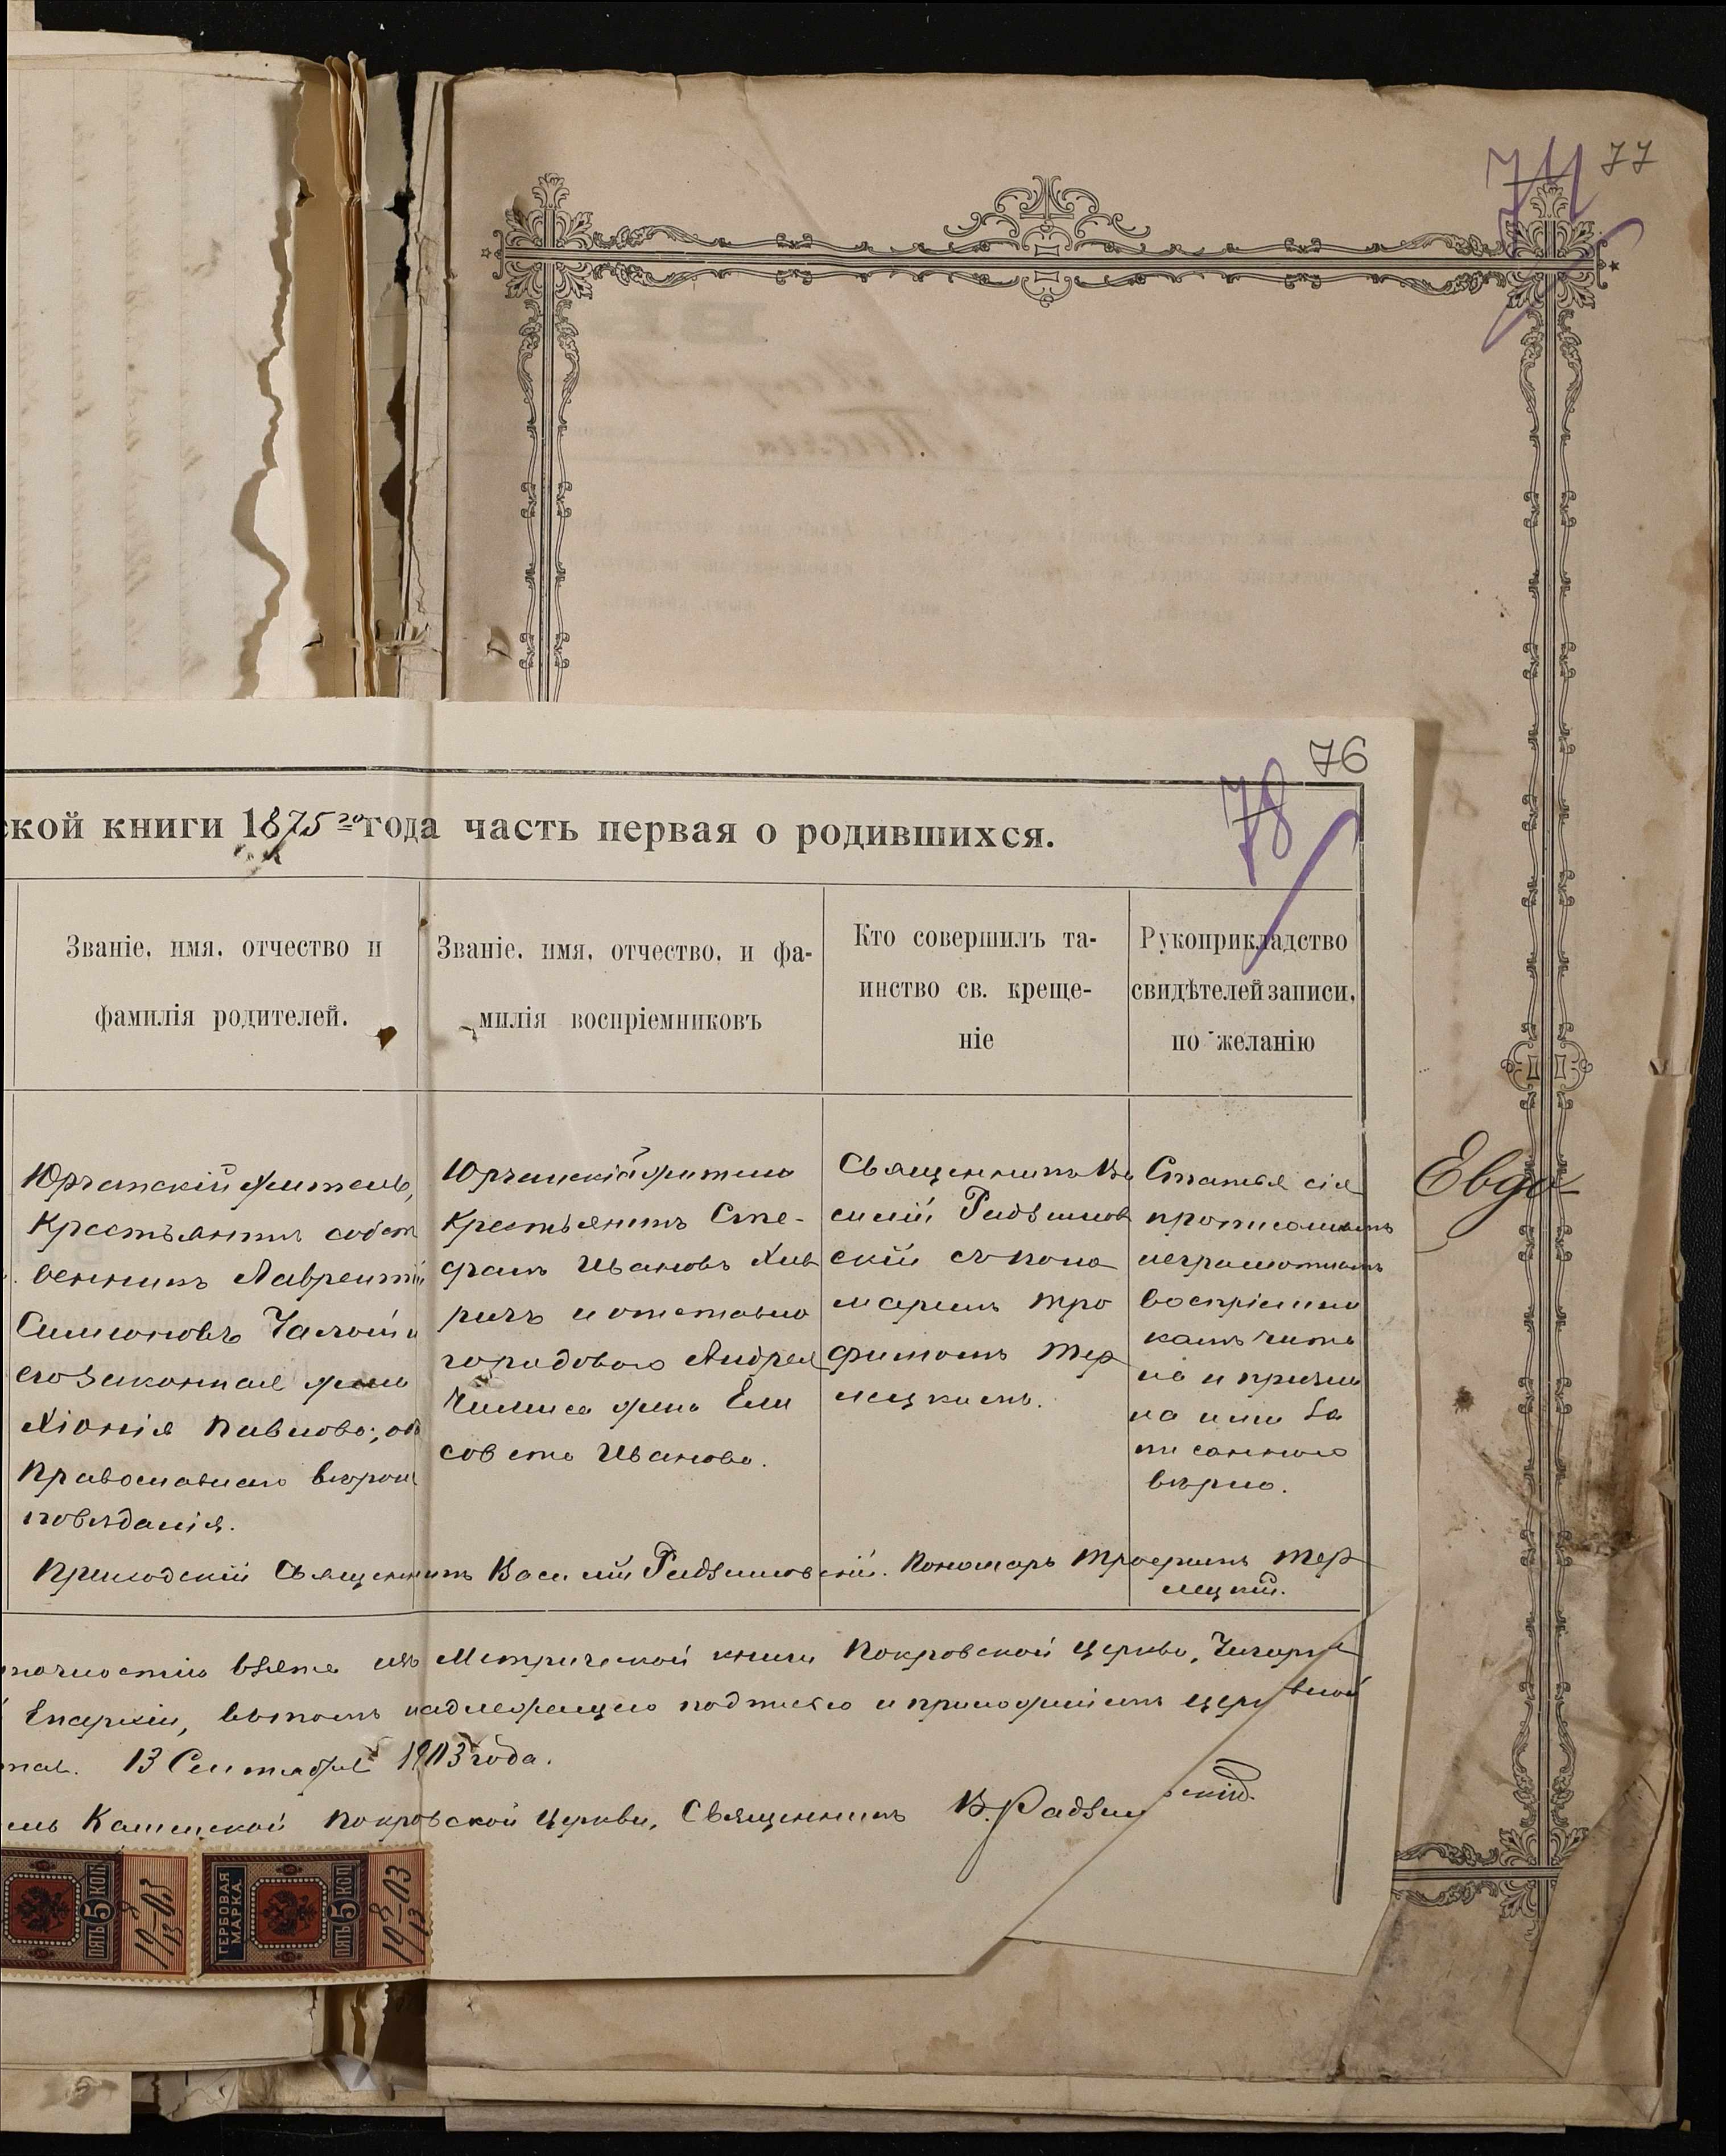 77
74
76
78
ской книги 1875го года часть первая о родившихся.
Званіе, имя, отчество и
фамилія родителей.
Званіе, имя, отчество, и фа-
милія воспріемниковъ
Кто совершилъ та-
инство св. креще-
ніе
Рукоприкладство
свидѣтелей записи,
по желанію
житель,
Крестьянинъ собст
венникъ Лаврентій
Симеоновъ
его законная жена
Хіонія Павлова; об
Православнаго вѣроис
повѣданія.
житель
Крестьянинъ Сте-
фанъ Ивановъ
и отставного
городового Андрея
жена Ели
совета Иванова.
Священникъ Ва
силій Радзимов
скій съ поно
маремъ Тро
фимомъ Тер
лецкимъ.
Статья сія
неграмотнымъ
воспріемни
камъ чита
на и признана
ими за
писанною
вѣрно.
Приходскій Священникъ Василій Радзимовскій. Пономарь Трофимъ Тер
лецкій.
точностію взята изъ Метрической книги Покровской Церкви,
Епархіи, въ томъ надлежащею подписью и приложеніемъ церковной
13 Сентября 1903 года.
Покровской Церкви, Священникъ В. Радзим скій.
Евдо
ПЯТЬ 5 КОП
19 8/13 03
ГЕРБОВАЯ
МАРКА.
ПЯТЬ 5 КОП
19 8/13 03